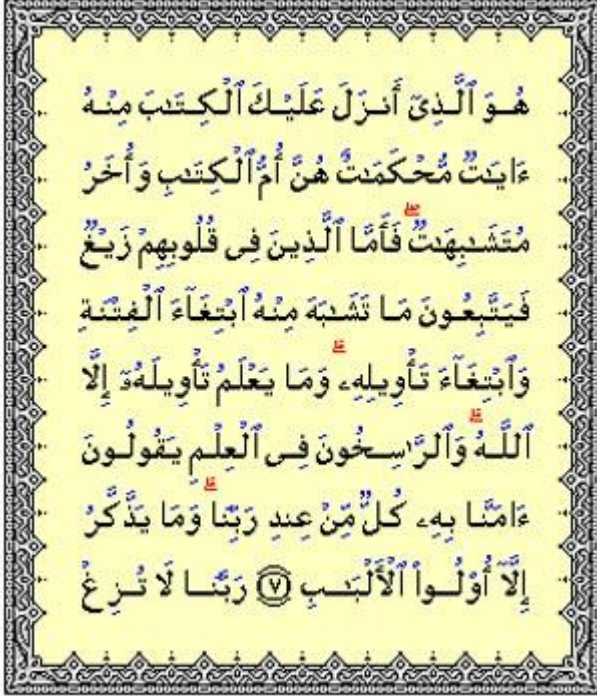 هُوَ ٱلَّذِىٓ أَنزَلَ عَلَيْكَ ٱلْكِتَـٰبَ مِنْهُ
ءَايَـٰتٌ مُّحْكَمَـٰتٌ هُنَّ أُمُّ ٱلْكِتَـٰبِ وَأُخَرُ
مُتَشَـٰبِهَـٰتٌ ۖ فَأَمَّا ٱلَّذِينَ فِى قُلُوبِهِمْ زَيْغٌ
فَيَتَّبِعُونَ مَا تَشَـٰبَهَ مِنْهُ ٱبْتِغَآءَ ٱلْفِتْنَةِ
وَٱبْتِغَآءَ تَأْوِيلِهِۦ ۗ وَمَا يَعْلَمُ تَأْوِيلَهُۥٓ إِلَّا
ٱللَّهُ ۗ وَٱلرَّٰسِخُونَ فِى ٱلْعِلْمِ يَقُولُونَ
ءَامَنَّا بِهِۦ كُلٌّ مِّنْ عِندِ رَبِّنَا ۗ وَمَا يَذَّكَّرُ
إِلَّآ أُو۟لُوا۟ ٱلْأَلْبَـٰبِ ﴿٧﴾ رَبَّنَا لَا تُزِغْ